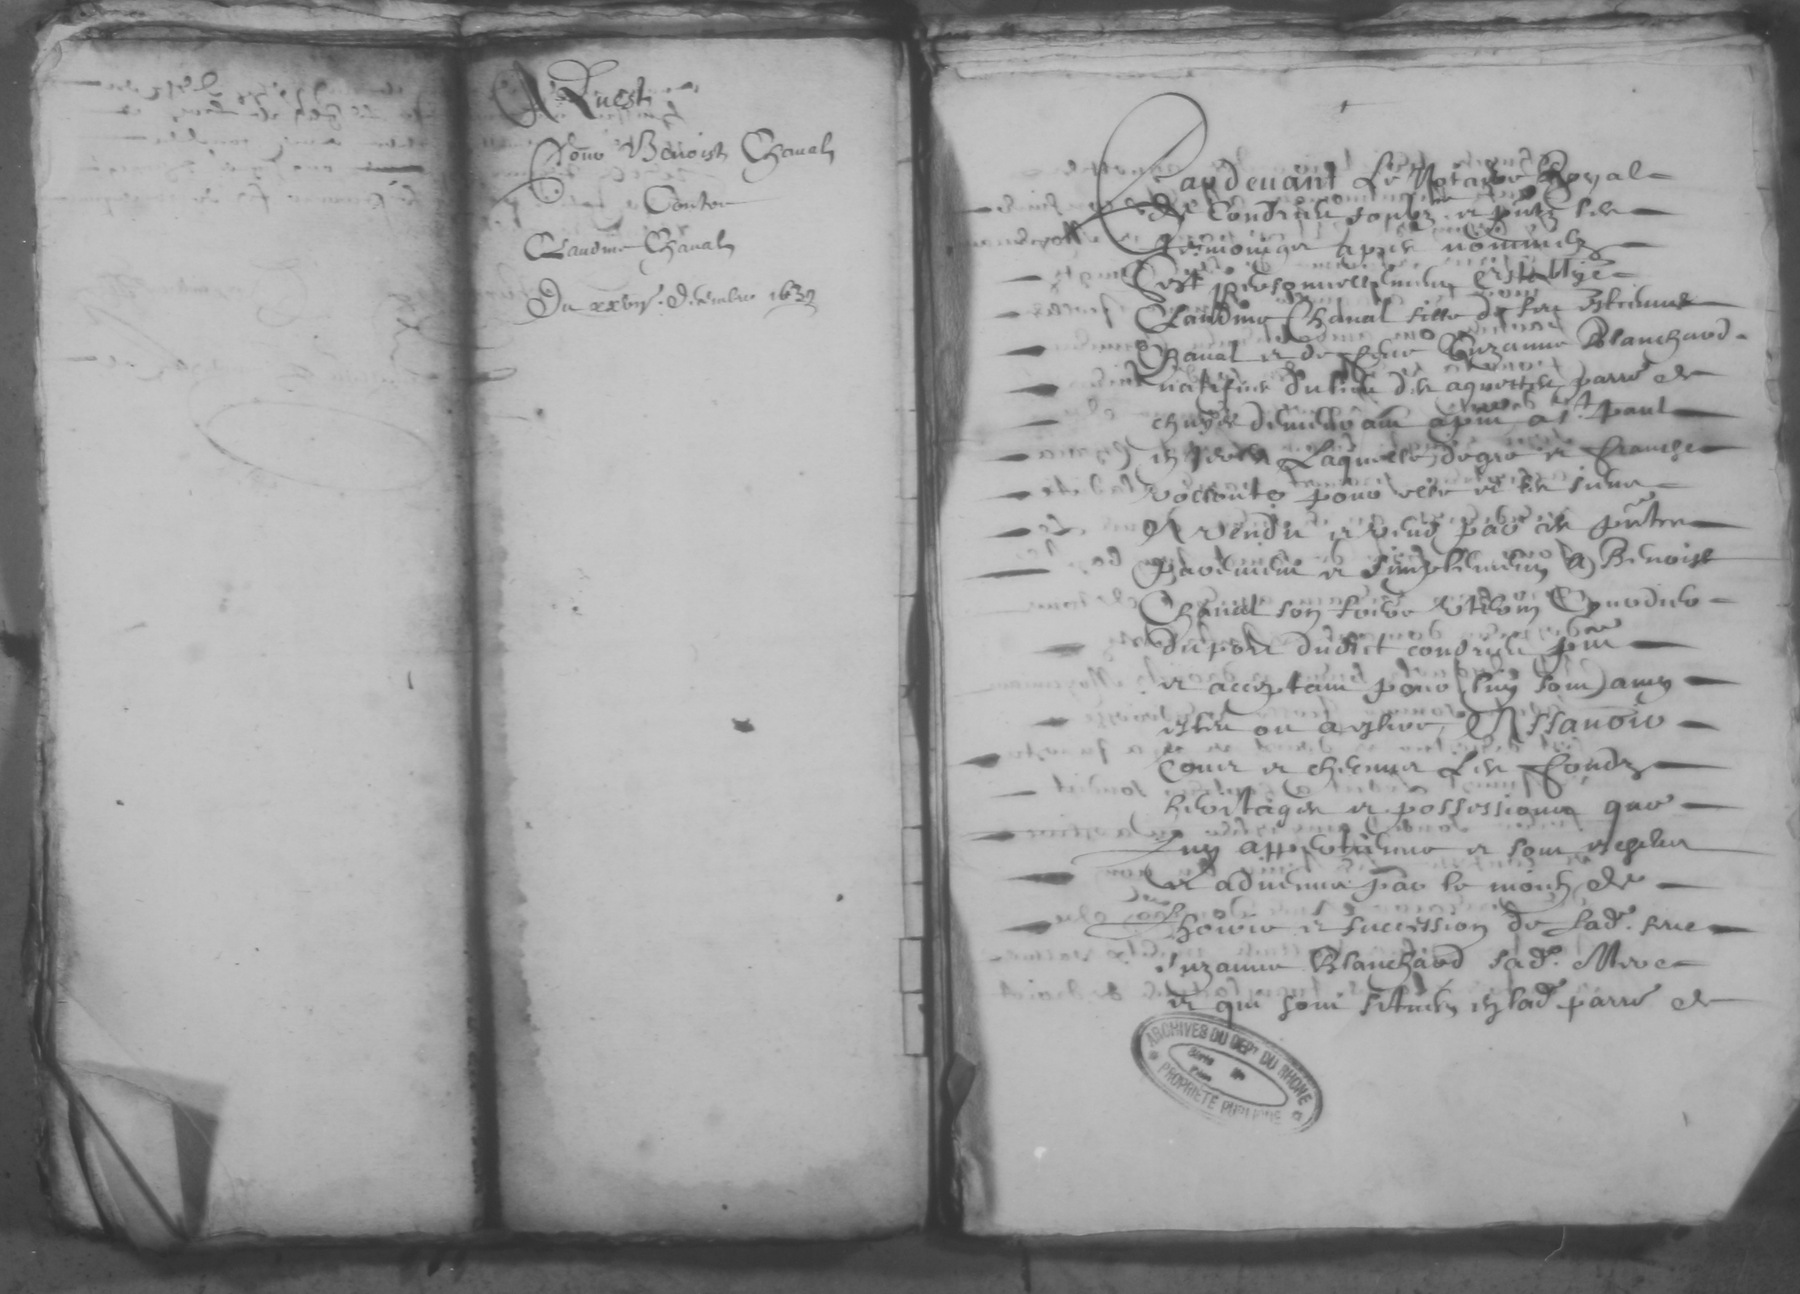 Aquest
Pour Benoist Chaval
Contre
Claudine Chaval
Du xxviie. decembre 1639
Pardevant Le Notaire Royal
De Condrieu soubz. et pntz les
tesmoings apres nommez
Cest personnellement establye
Claudine Chaval fille de feu Estienne
Chaval et de feue Suzanne Blanchard
natifve du lieu des parre de
chuyes demeurant a pnt a St. paul
en Laquelle de gre et franche
vollonte pour elle et les siens
A vendu et vend par ces pntes
purement et simplement a Benoist
Chaval son frere
du port dudict condrieu pnt
et acceptant pour luy son amy
esleu ou a eslire, Assavoir
tous et chacuns Les fondz
heritages et possessions que
Luy appartiennent et sont
et advenus par le moien de
Lhoirie et succession de lade. feue
Suzanne Blanchard sade. Mere
et qui sont situes en lade parre de
ARCHIVES DU DEPt DU RHONE
PROPRIETE PUBLIQUE